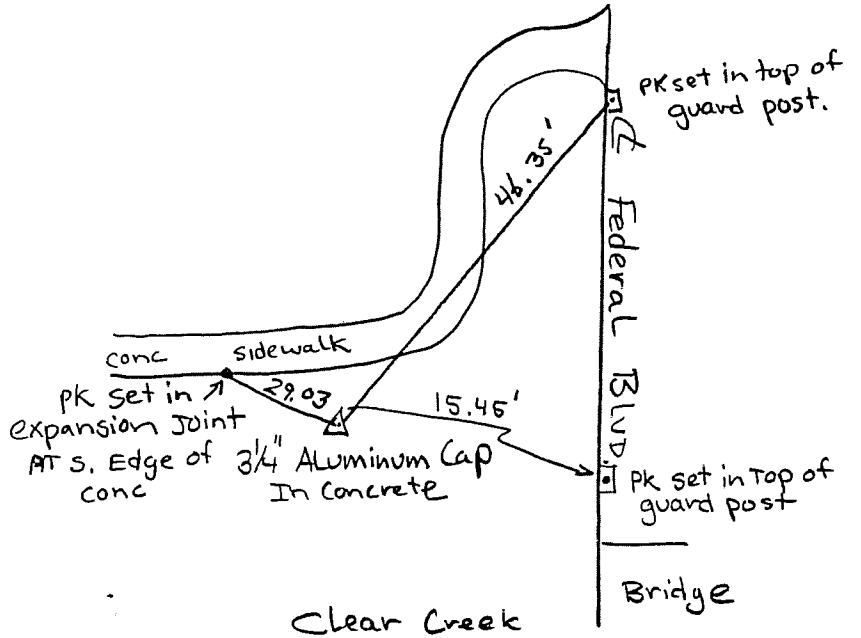 PK set in top of
guard post.
46.35'
℄ Federal Blvd
conc sidewalk
29.03
15.45'
PK set in
expansion Joint
AT S. Edge of
conc
3 1/4" Aluminum Cap
In Concrete
PK set in Top of
guard post
Bridge
Clear Creek